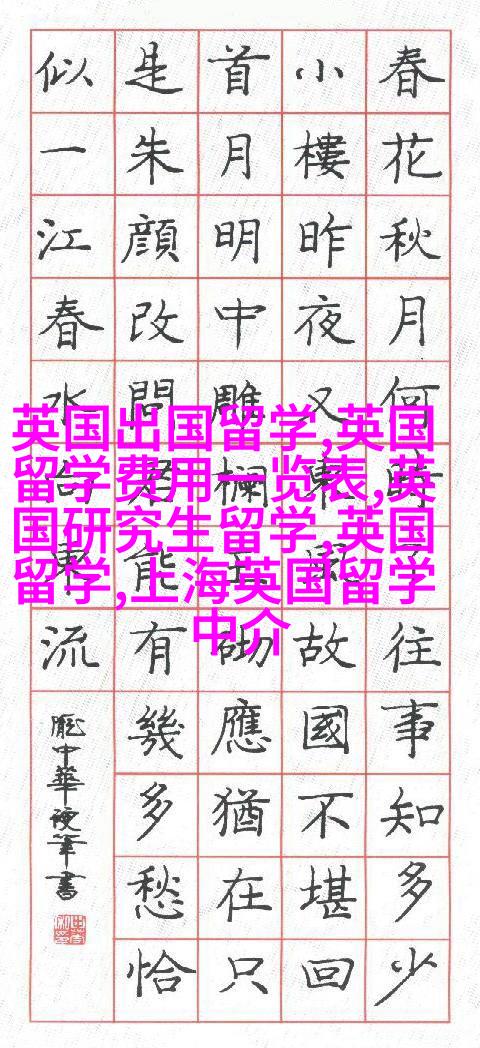 春花秋月何時了往事知多少
小樓昨夜又東風故國不堪回
首月明中雕欄玉砌應猶在只
是朱顔改問君能有幾多愁恰
似一江春水向東流
龐中華硬筆書
英国出国留学,英国
留学费用一览表,英
国研究生留学,英国
留学,上海英国留学
中介